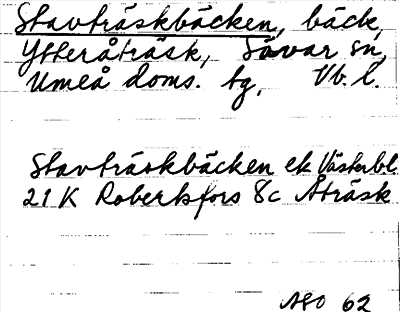 Stavträskbäcken, bäck,
Ytteråträsk, Sävar sn,
Umeå doms. tg, Vb. l.
Stavträskbäcken ek Västerbl
21 K Robertsfors 8c Åträsk
62